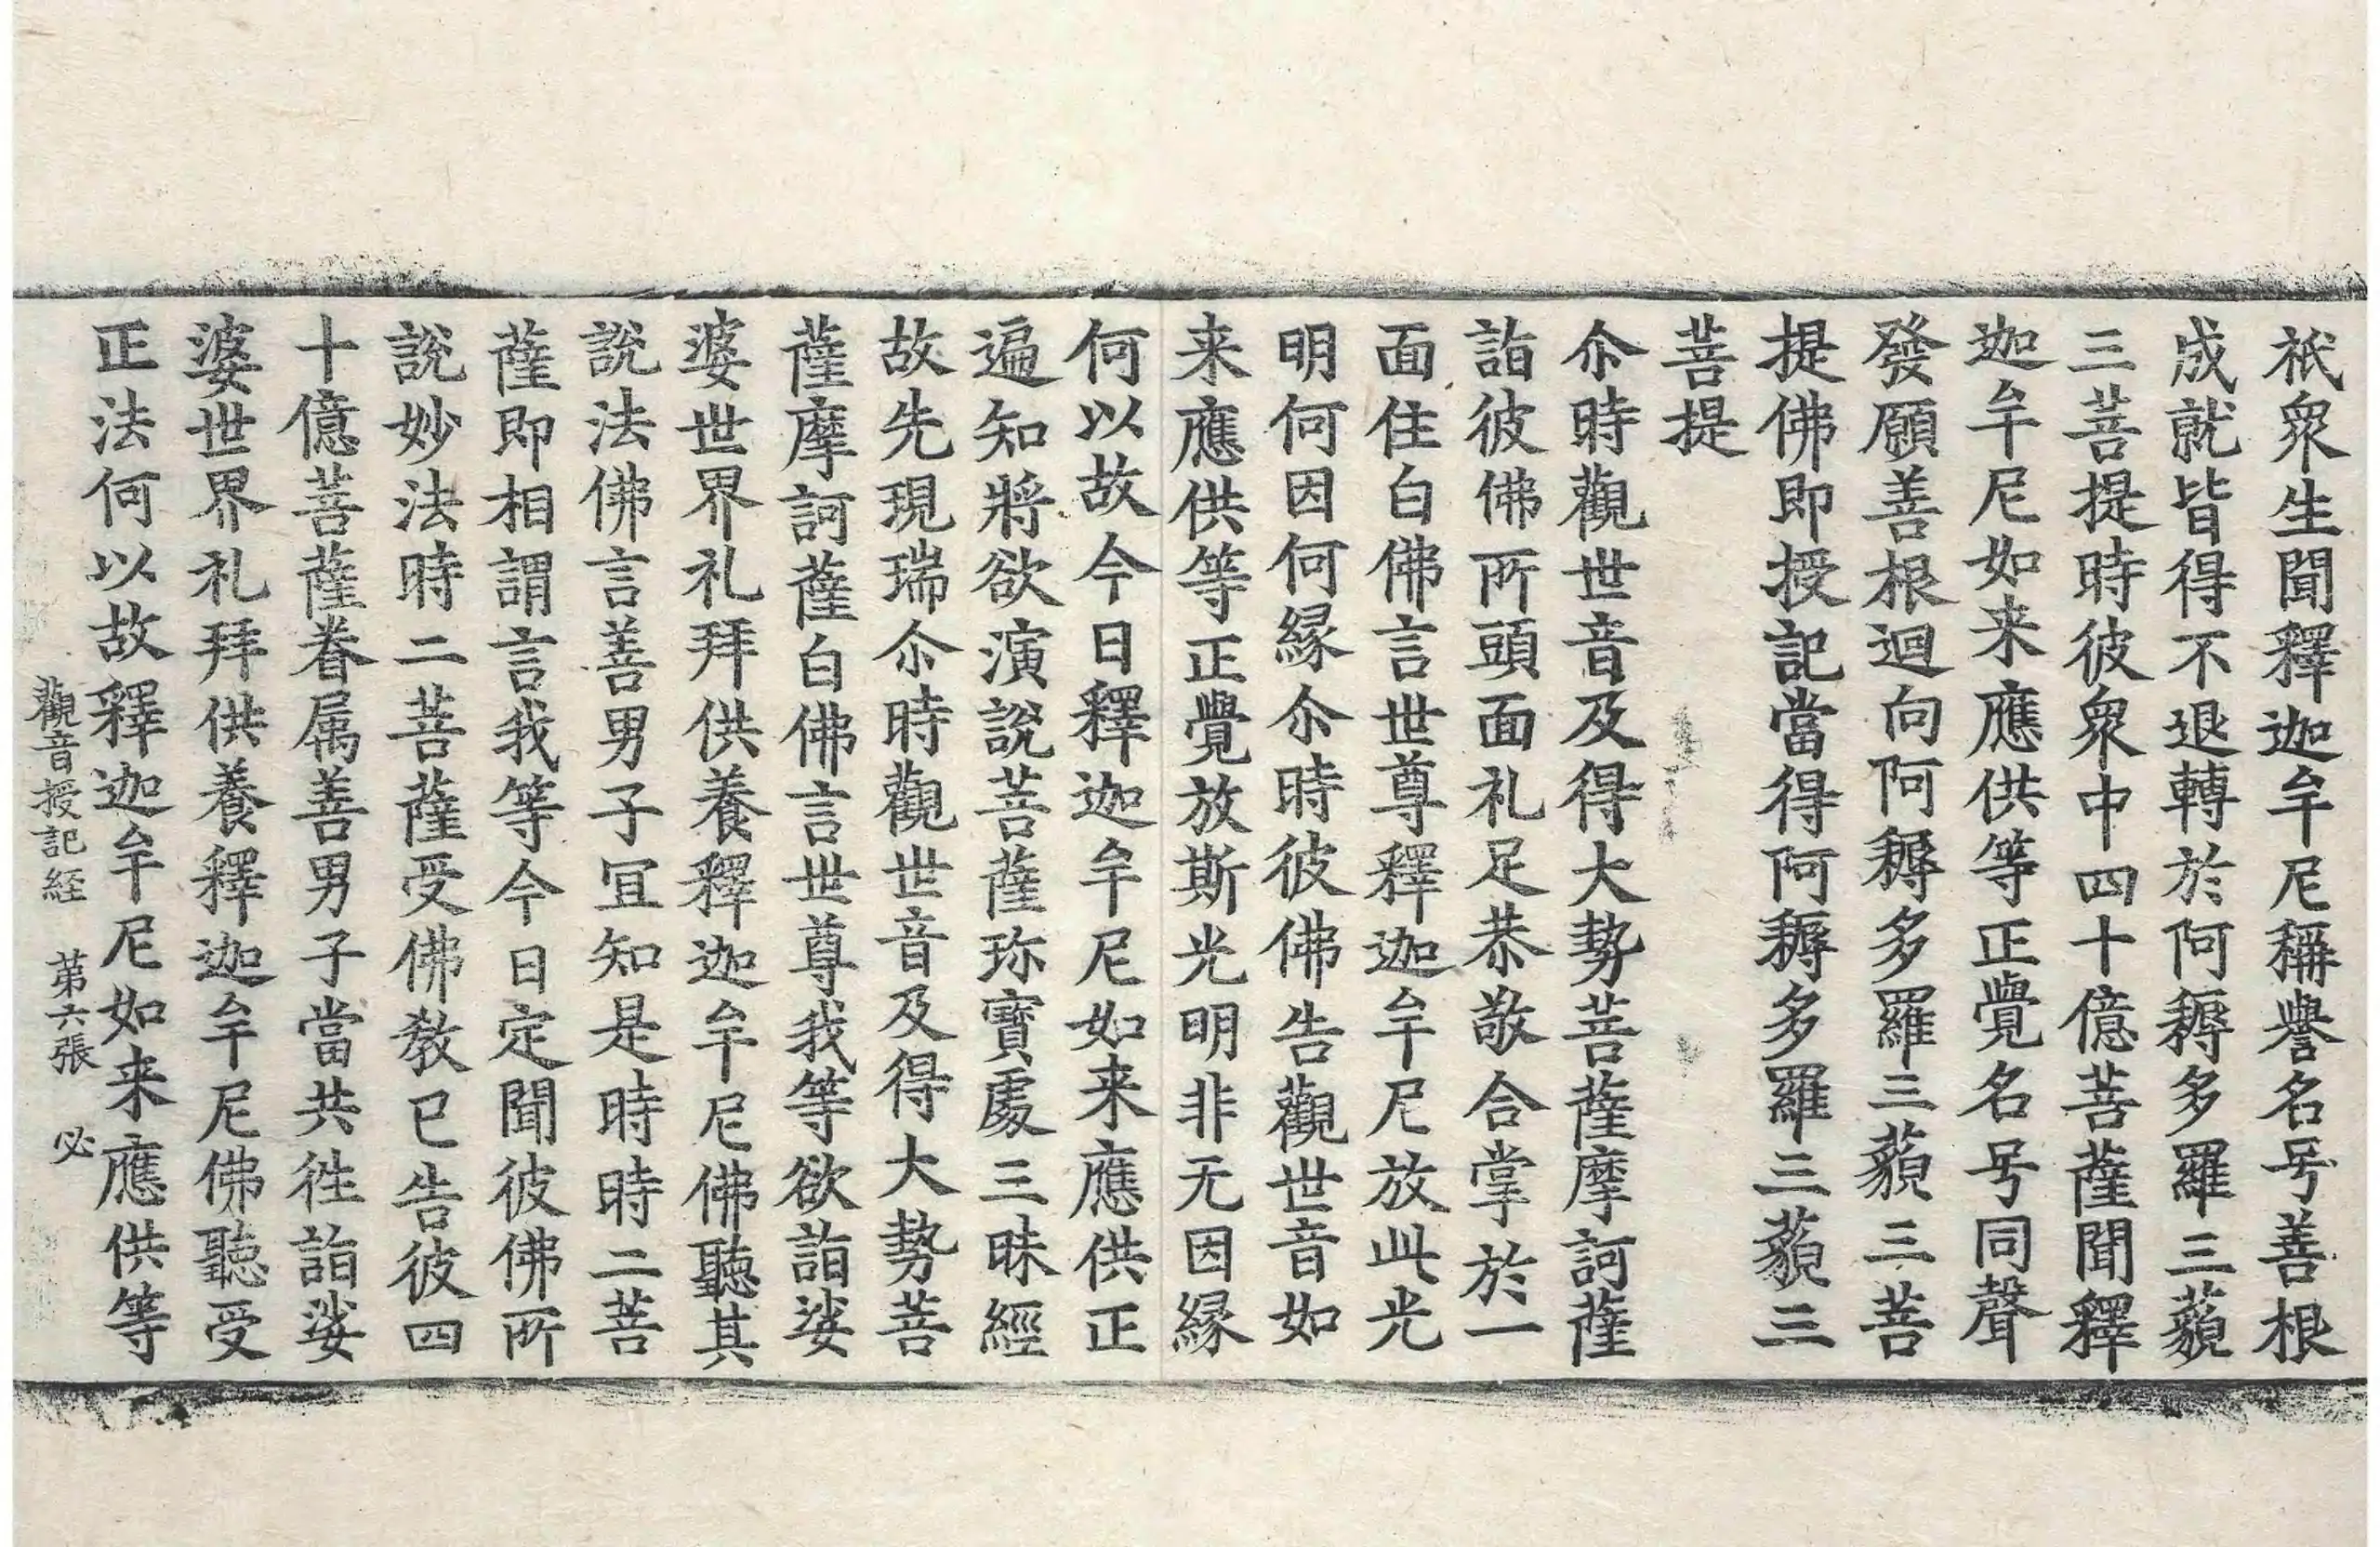 祇衆生聞釋迦牟尼稱譽名号善根
成就皆得不退轉於阿耨多羅三藐
三菩提時彼衆中四十億菩薩聞釋
迦牟尼如来應供等正覺名号同聲
發願善根迴向阿耨多羅三藐三菩
提佛即授記當得阿耨多羅三藐三
菩提
尒時觀世音及得大勢菩薩摩訶薩
詣彼佛所頭面礼足恭敬合掌於一
面住白佛言世尊釋迦牟尼放此光
明何因何縁尒時彼佛告觀世音如
来應供等正覺放斯光明非无因縁
何以故今日釋迦牟尼如来應供正
遍知將欲演說菩薩珎寳處三昧經
故先現瑞尒時觀世音及得大勢菩
薩摩訶薩白佛言世尊我等欲詣娑
婆世界礼拜供養釋迦牟尼佛聽其
說法佛言善男子冝知是時時二菩
薩即相謂言我等今日定聞彼佛所
說妙法時二菩薩受佛教已告彼四
十億菩薩眷属善男子當共徃詣娑
婆世界礼拜供養釋迦牟尼佛聽受
正法何以故釋迦牟尼如来應供等
觀音授記経　第六張　必